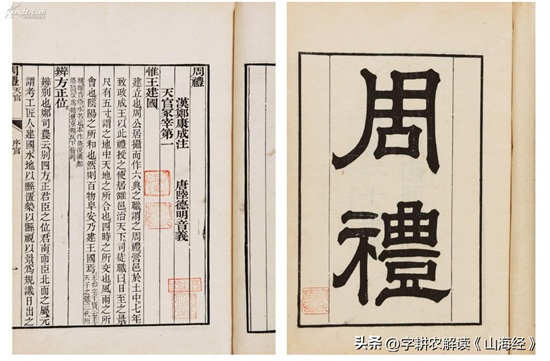 周禮
漢鄭康成注 唐陸德明音義
天官冢宰第一
惟王建國
建立也周公居攝而作六典之職謂之周禮營邑於土中七年
致政成王以此禮授之使居雒邑治天下司徒職曰日至之景
尺有五寸謂之地中天地之所合也四時之所交也風雨之所
會也陰陽之所和也然則百物阜安乃建王國焉
辨方正位
辨别也鄭司農云别四方正君臣之位君南面臣北面之屬元
謂考工匠人建國水地以縣置槷以縣視以景爲規識日出之
周禮 天官 序官 一
周禮
头条 @字耕农解读《山海经》